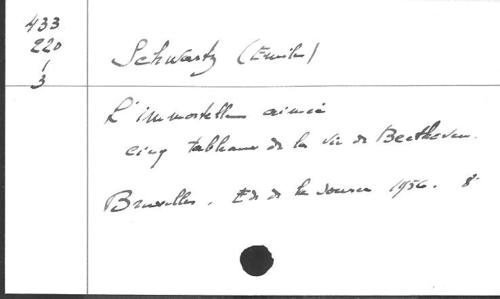 433
220
1
3
Schwartz (Emile)
L'immortelle aimée
cinq tableaux de la vie de Beethoven.
Bruxelles. Ed. de la source 1956. 8°